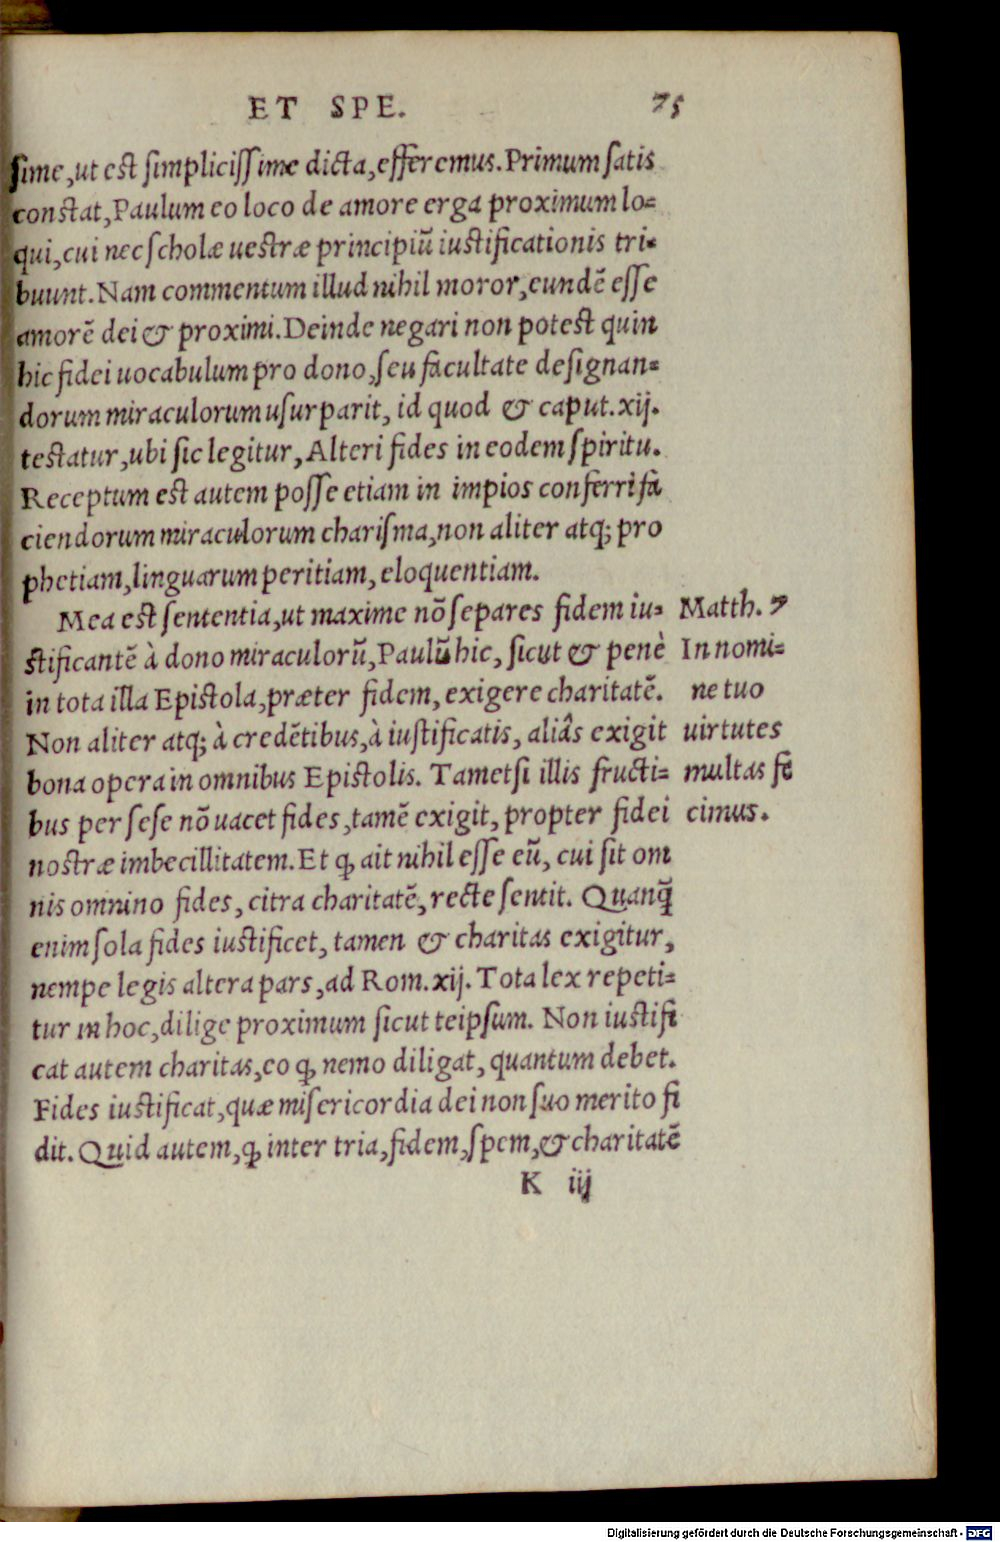 ET SPE. 75
ſime, ut eſt ſimpliciſſime dicta, efferemus. Primum ſatis
conſtat, Paulum eo loco de amore erga proximum lo=
qui, cui nec ſcholæ ueſtræ principiũ iuſtificationis tri=
buunt. Nam commentum illud nihil moror, eundẽ eſſe
amorẽ dei & proximi. Deinde negari non poteſt quin
hic fidei uocabulum pro dono, ſeu facultate deſignan=
dorum miraculorum uſurparit, id quod & caput. xij.
teſtatur, ubi ſic legitur, Alteri fides in eodem ſpiritu.
Receptum eſt autem poſſe etiam in impios conferri fa
ciendorum miraculorum chariſma, non aliter atq; pro
phetiam, linguarum peritiam, eloquentiam.
Mea eſt ſententia, ut maxime nõ ſepares fidem iu=
ſtificantẽ à dono miraculorũ, Paulũ hic, ſicut & penè
in tota illa Epiſtola, præter fidem, exigere charitatẽ.
Non aliter atq; à credẽtibus, à iuſtificatis, aliâs exigit
bona opera in omnibus Epiſtolis. Tametſi illis fructi=
bus per ſeſe nõ uacet fides, tamẽ exigit, propter fidei
noſtræ imbecillitatem. Et ꝙ ait nihil eſſe eũ, cui ſit om
nis omnino fides, citra charitatẽ, recte ſentit. Quanq̃
enim ſola fides iuſtificet, tamen & charitas exigitur,
nempe legis altera pars, ad Rom. xij. Tota lex repeti=
tur in hoc, dilige proximum ſicut teipſum. Non iuſtifi
cat autem charitas, eo ꝙ nemo diligat, quantum debet.
Fides iuſtificat, quæ miſericordia dei non ſuo merito fi
dit. Quid autem, ꝙ inter tria, fidem, ſpem, & charitatẽ
K iij
Matth. 7
In nomi=
ne tuo
uirtutes
multas fe
cimus.
Digitalisierung gefördert durch die Deutsche Forschungsgemeinschaft - DFG